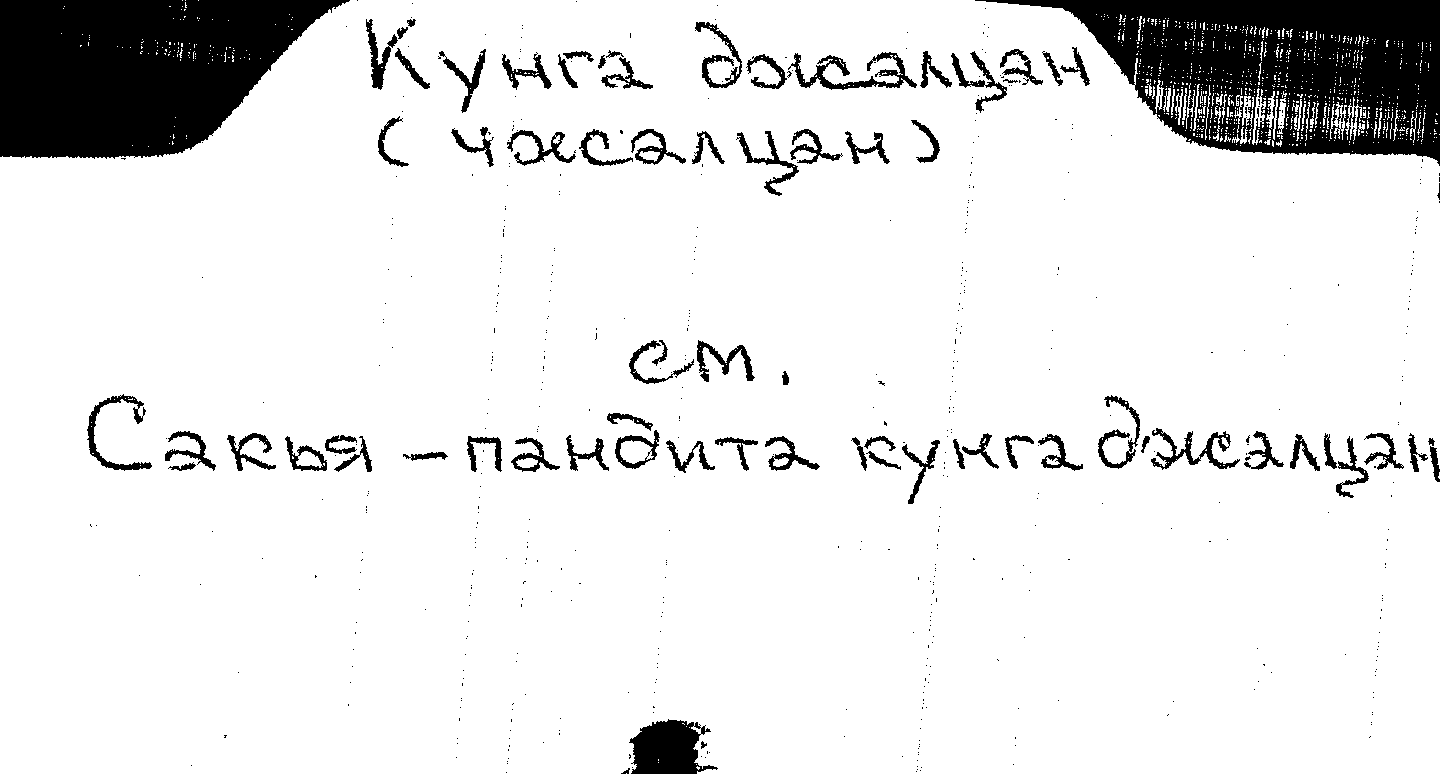 Кунга джалцан
(чжалцан)
см.
Сакья - пандита кунга джалцан